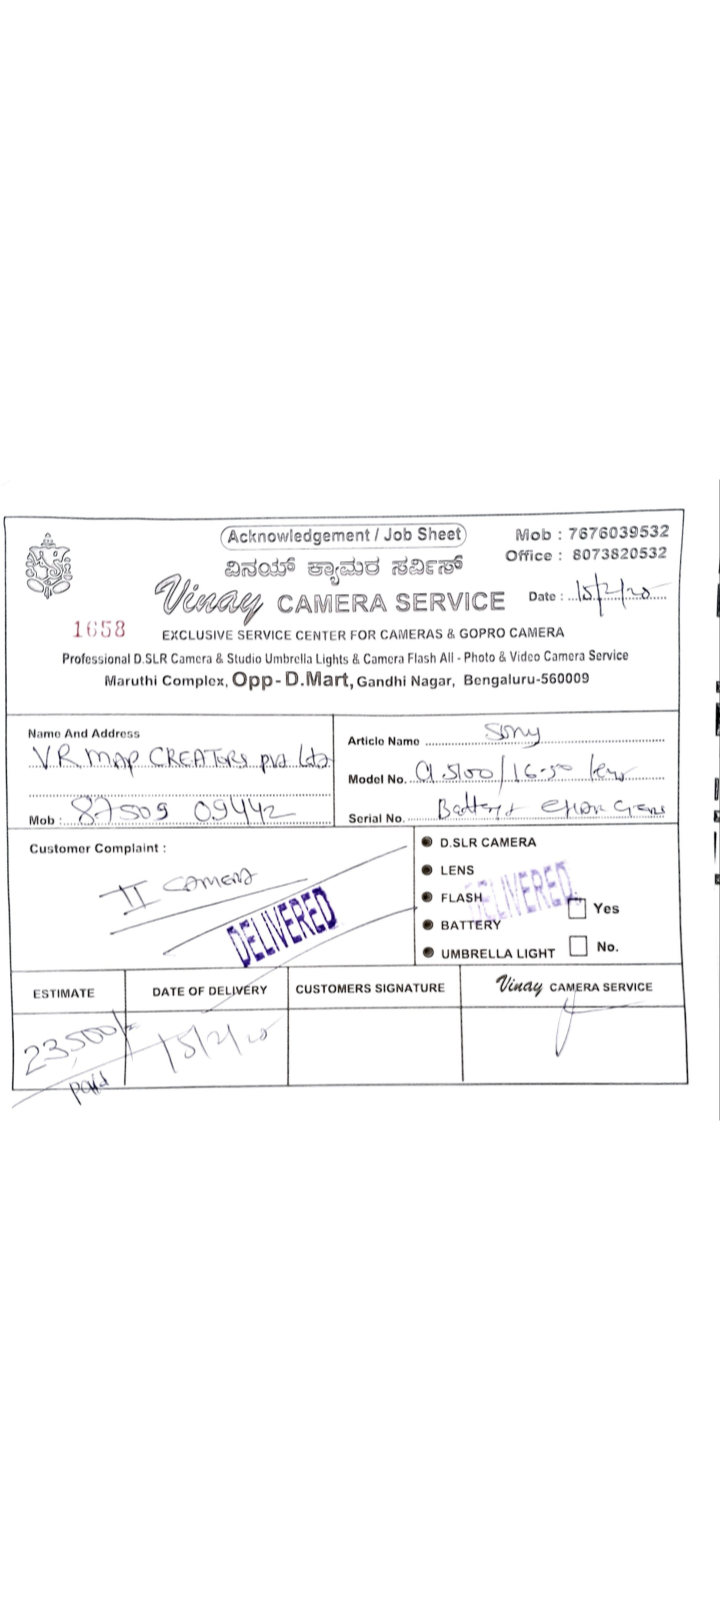 Acknowledgement / Job Sheet
Mob : 7676039532
Office : 8073820532
ವಿನಯ್ ಕ್ಯಾಮರ ಸರ್ವಿಸ್
Vinay CAMERA SERVICE
Date : 15/2/25
1658
EXCLUSIVE SERVICE CENTER FOR CAMERAS & GOPRO CAMERA
Professional D.SLR Camera & Studio Umbrella Lights & Camera Flash All - Photo & Video Camera Service
Maruthi Complex, Opp - D.Mart, Gandhi Nagar, Bengaluru-560009
Name And Address
VR MAP CREATORS pvt Ltd
Mob : 87509 09442
Article Name Sony
Model No. a 5100/16-50 lens
Serial No. Battery
Customer Complaint :
II CAMERA
DELIVERED
D.SLR CAMERA
LENS
FLASH
BATTERY
UMBRELLA LIGHT
DELIVERED
Yes
No.
ESTIMATE
DATE OF DELIVERY
CUSTOMERS SIGNATURE
Vinay CAMERA SERVICE
23,500/-
paid
15/2/25